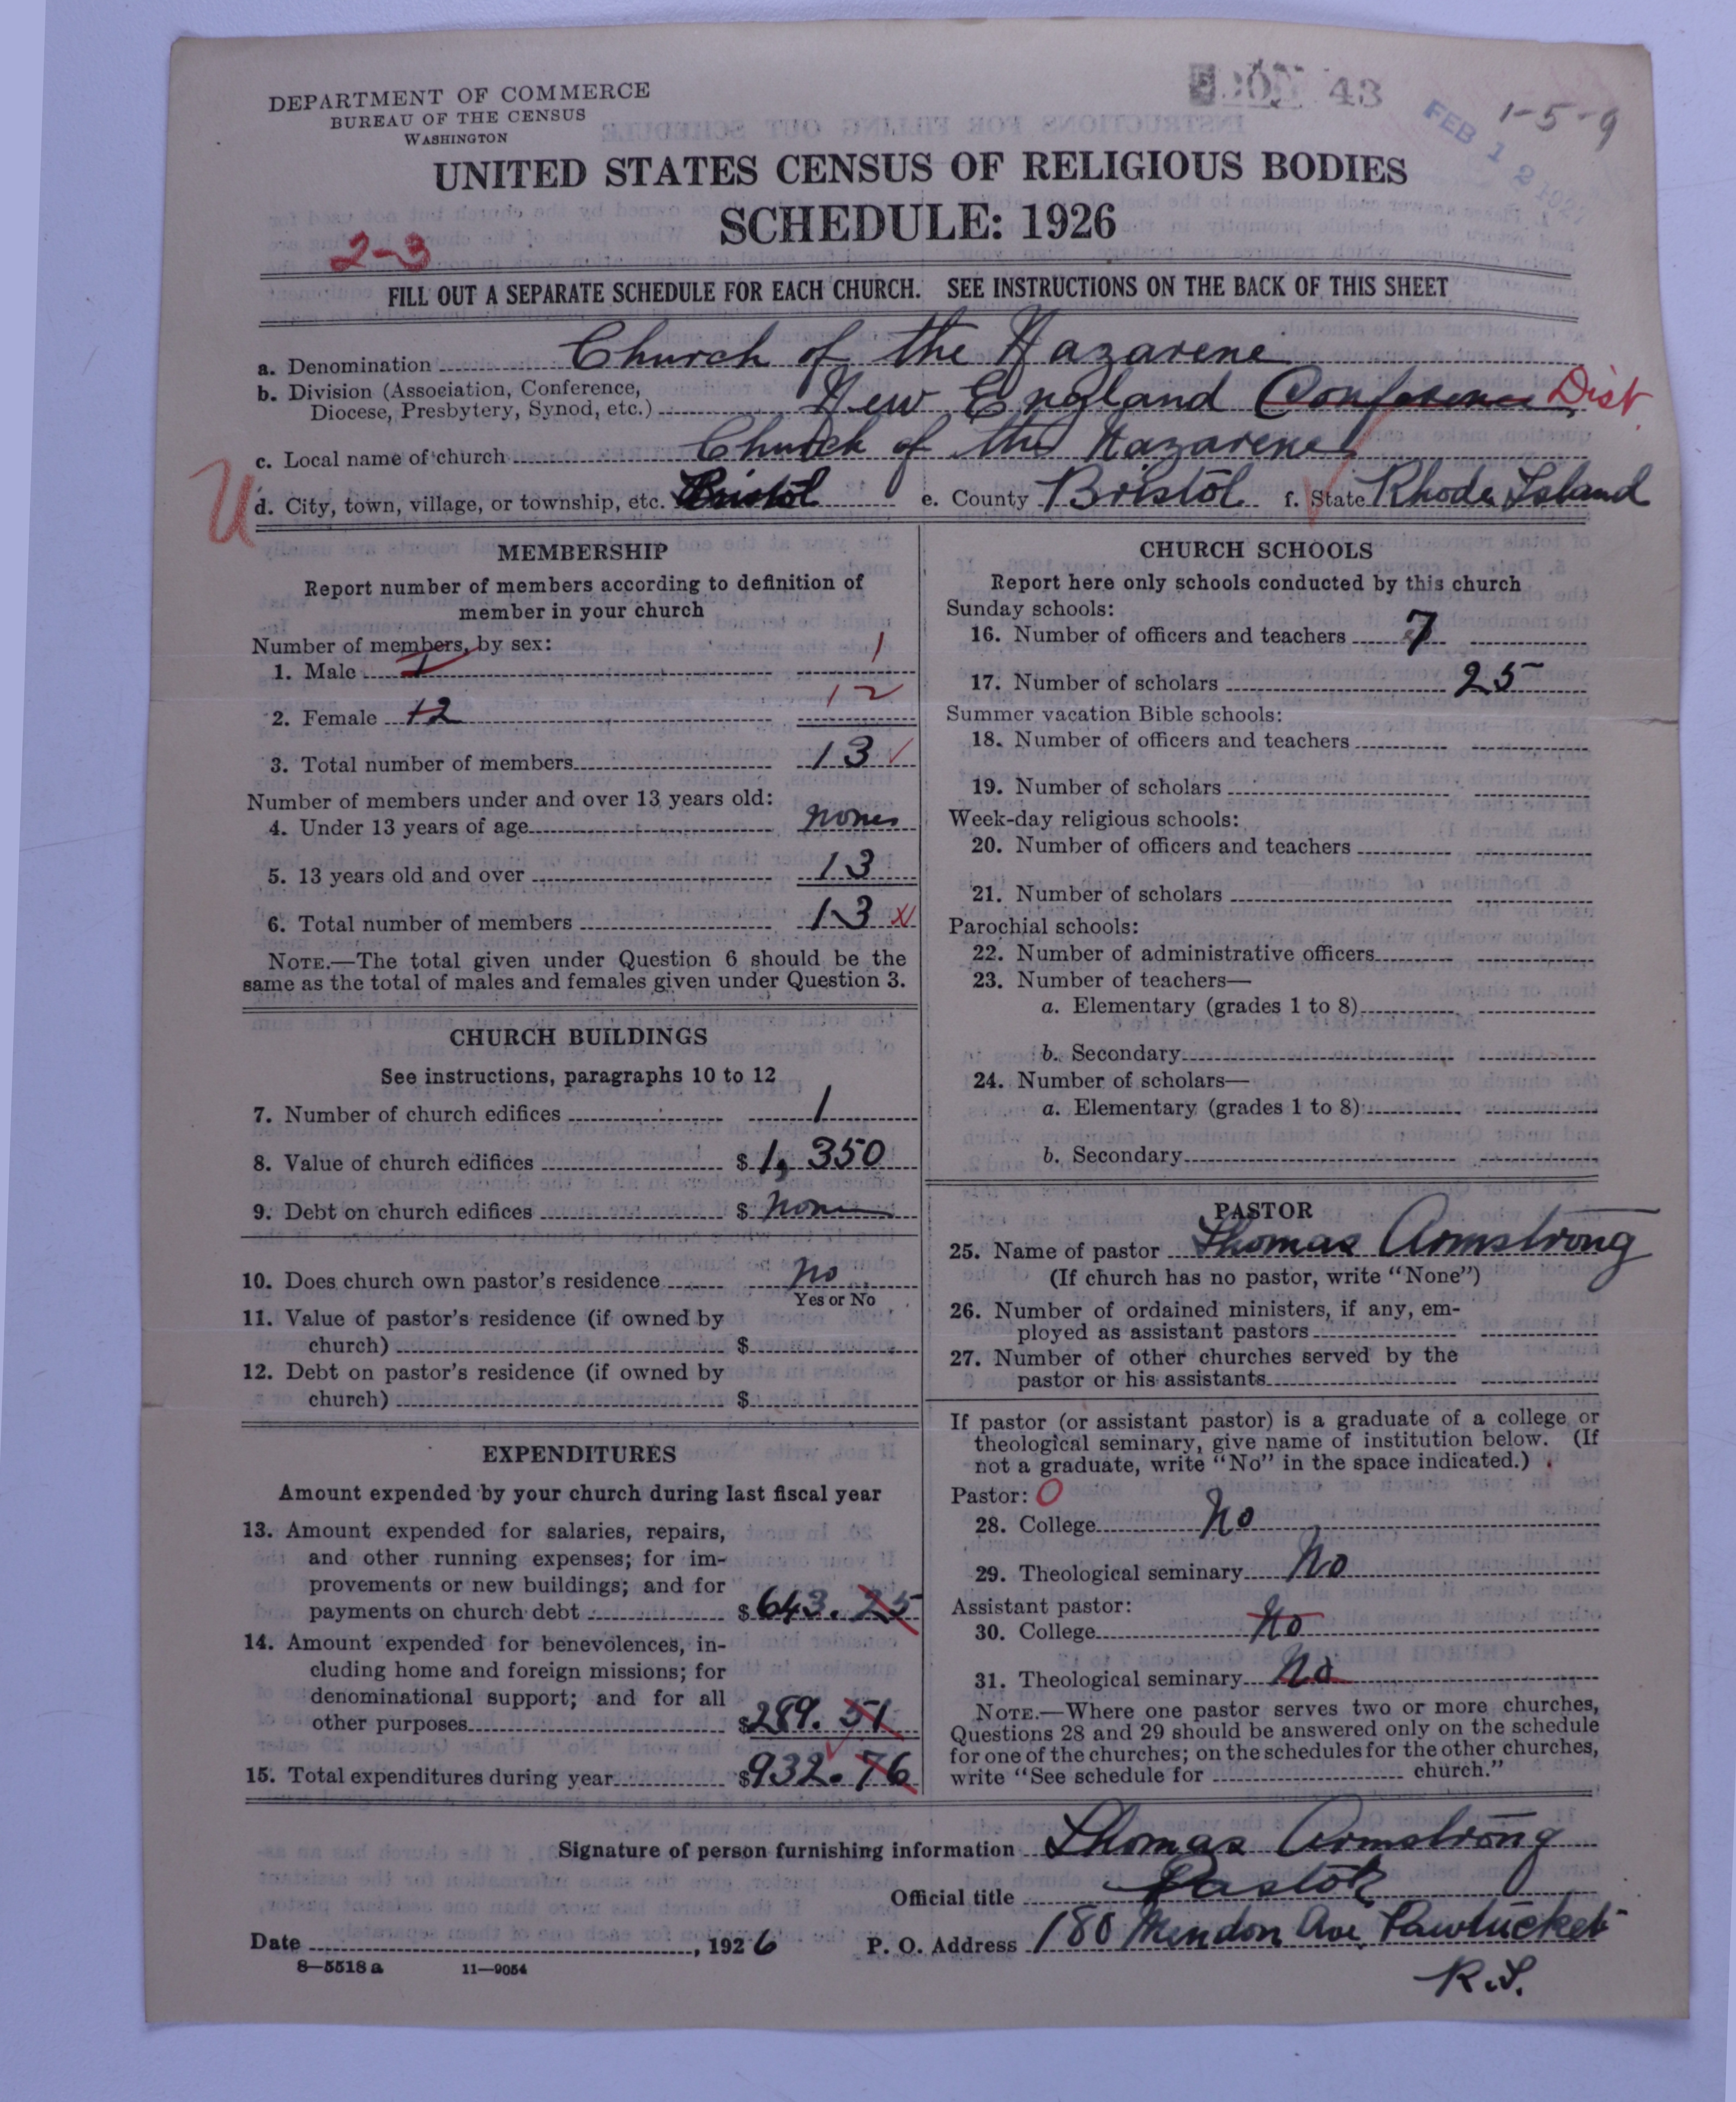 DEPARTMENT OF COMMERCE
BUREAU OF THE CENSUS
WASHINGTON
43
FEB 12 1927
1-5-9
UNITED STATES CENSUS OF RELIGIOUS BODIES
SCHEDULE: 1926
2-3
FILL OUT A SEPARATE SCHEDULE FOR EACH CHURCH. SEE INSTRUCTIONS ON THE BACK OF THIS SHEET
a. Denomination Church of the Nazarene
b. Division (Association, Conference,
Diocese, Presbytery, Synod, etc.) New England Conference Dist.
c. Local name of church Church of the Nazarene
U
d. City, town, village, or township, etc. Bristol e. County Bristol f. State Rhode Island
MEMBERSHIP
Report number of members according to definition of
member in your church
Number of members, by sex:
1. Male 1 1
2. Female 12 12
3. Total number of members 13
Number of members under and over 13 years old:
4. Under 13 years of age none
5. 13 years old and over 13
6. Total number of members 13
NOTE.—The total given under Question 6 should be the
same as the total of males and females given under Question 3.
CHURCH BUILDINGS
See instructions, paragraphs 10 to 12
7. Number of church edifices 1
8. Value of church edifices $ 1,350
9. Debt on church edifices $ none
10. Does church own pastor's residence no
Yes or No
11. Value of pastor's residence (if owned by
church) $
12. Debt on pastor's residence (if owned by
church) $
EXPENDITURES
Amount expended by your church during last fiscal year
13. Amount expended for salaries, repairs,
and other running expenses; for im-
provements or new buildings; and for
payments on church debt $ 643.25
14. Amount expended for benevolences, in-
cluding home and foreign missions; for
denominational support; and for all
other purposes $ 289.51
15. Total expenditures during year $ 932.76
CHURCH SCHOOLS
Report here only schools conducted by this church
Sunday schools:
16. Number of officers and teachers 7
17. Number of scholars 25
Summer vacation Bible schools:
18. Number of officers and teachers
19. Number of scholars
Week-day religious schools:
20. Number of officers and teachers
21. Number of scholars
Parochial schools:
22. Number of administrative officers
23. Number of teachers—
a. Elementary (grades 1 to 8)
b. Secondary
24. Number of scholars—
a. Elementary (grades 1 to 8)
b. Secondary
PASTOR
25. Name of pastor Thomas Armstrong
(If church has no pastor, write "None")
26. Number of ordained ministers, if any, em-
ployed as assistant pastors
27. Number of other churches served by the
pastor or his assistants
If pastor (or assistant pastor) is a graduate of a college or
theological seminary, give name of institution below. (If
not a graduate, write "No" in the space indicated.)
Pastor: O
28. College No
29. Theological seminary No
Assistant pastor:
30. College No
31. Theological seminary No
NOTE.—Where one pastor serves two or more churches,
Questions 28 and 29 should be answered only on the schedule
for one of the churches; on the schedules for the other churches,
write "See schedule for church."
Signature of person furnishing information Thomas Armstrong
Official title Pastor
Date , 1926 P. O. Address 180 Mendon Ave Pawtucket
R.I.
8—5518 a 11—9054